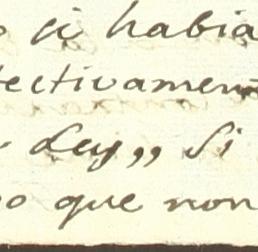 o si habia
fectivamen
Ley,, Si
o que non